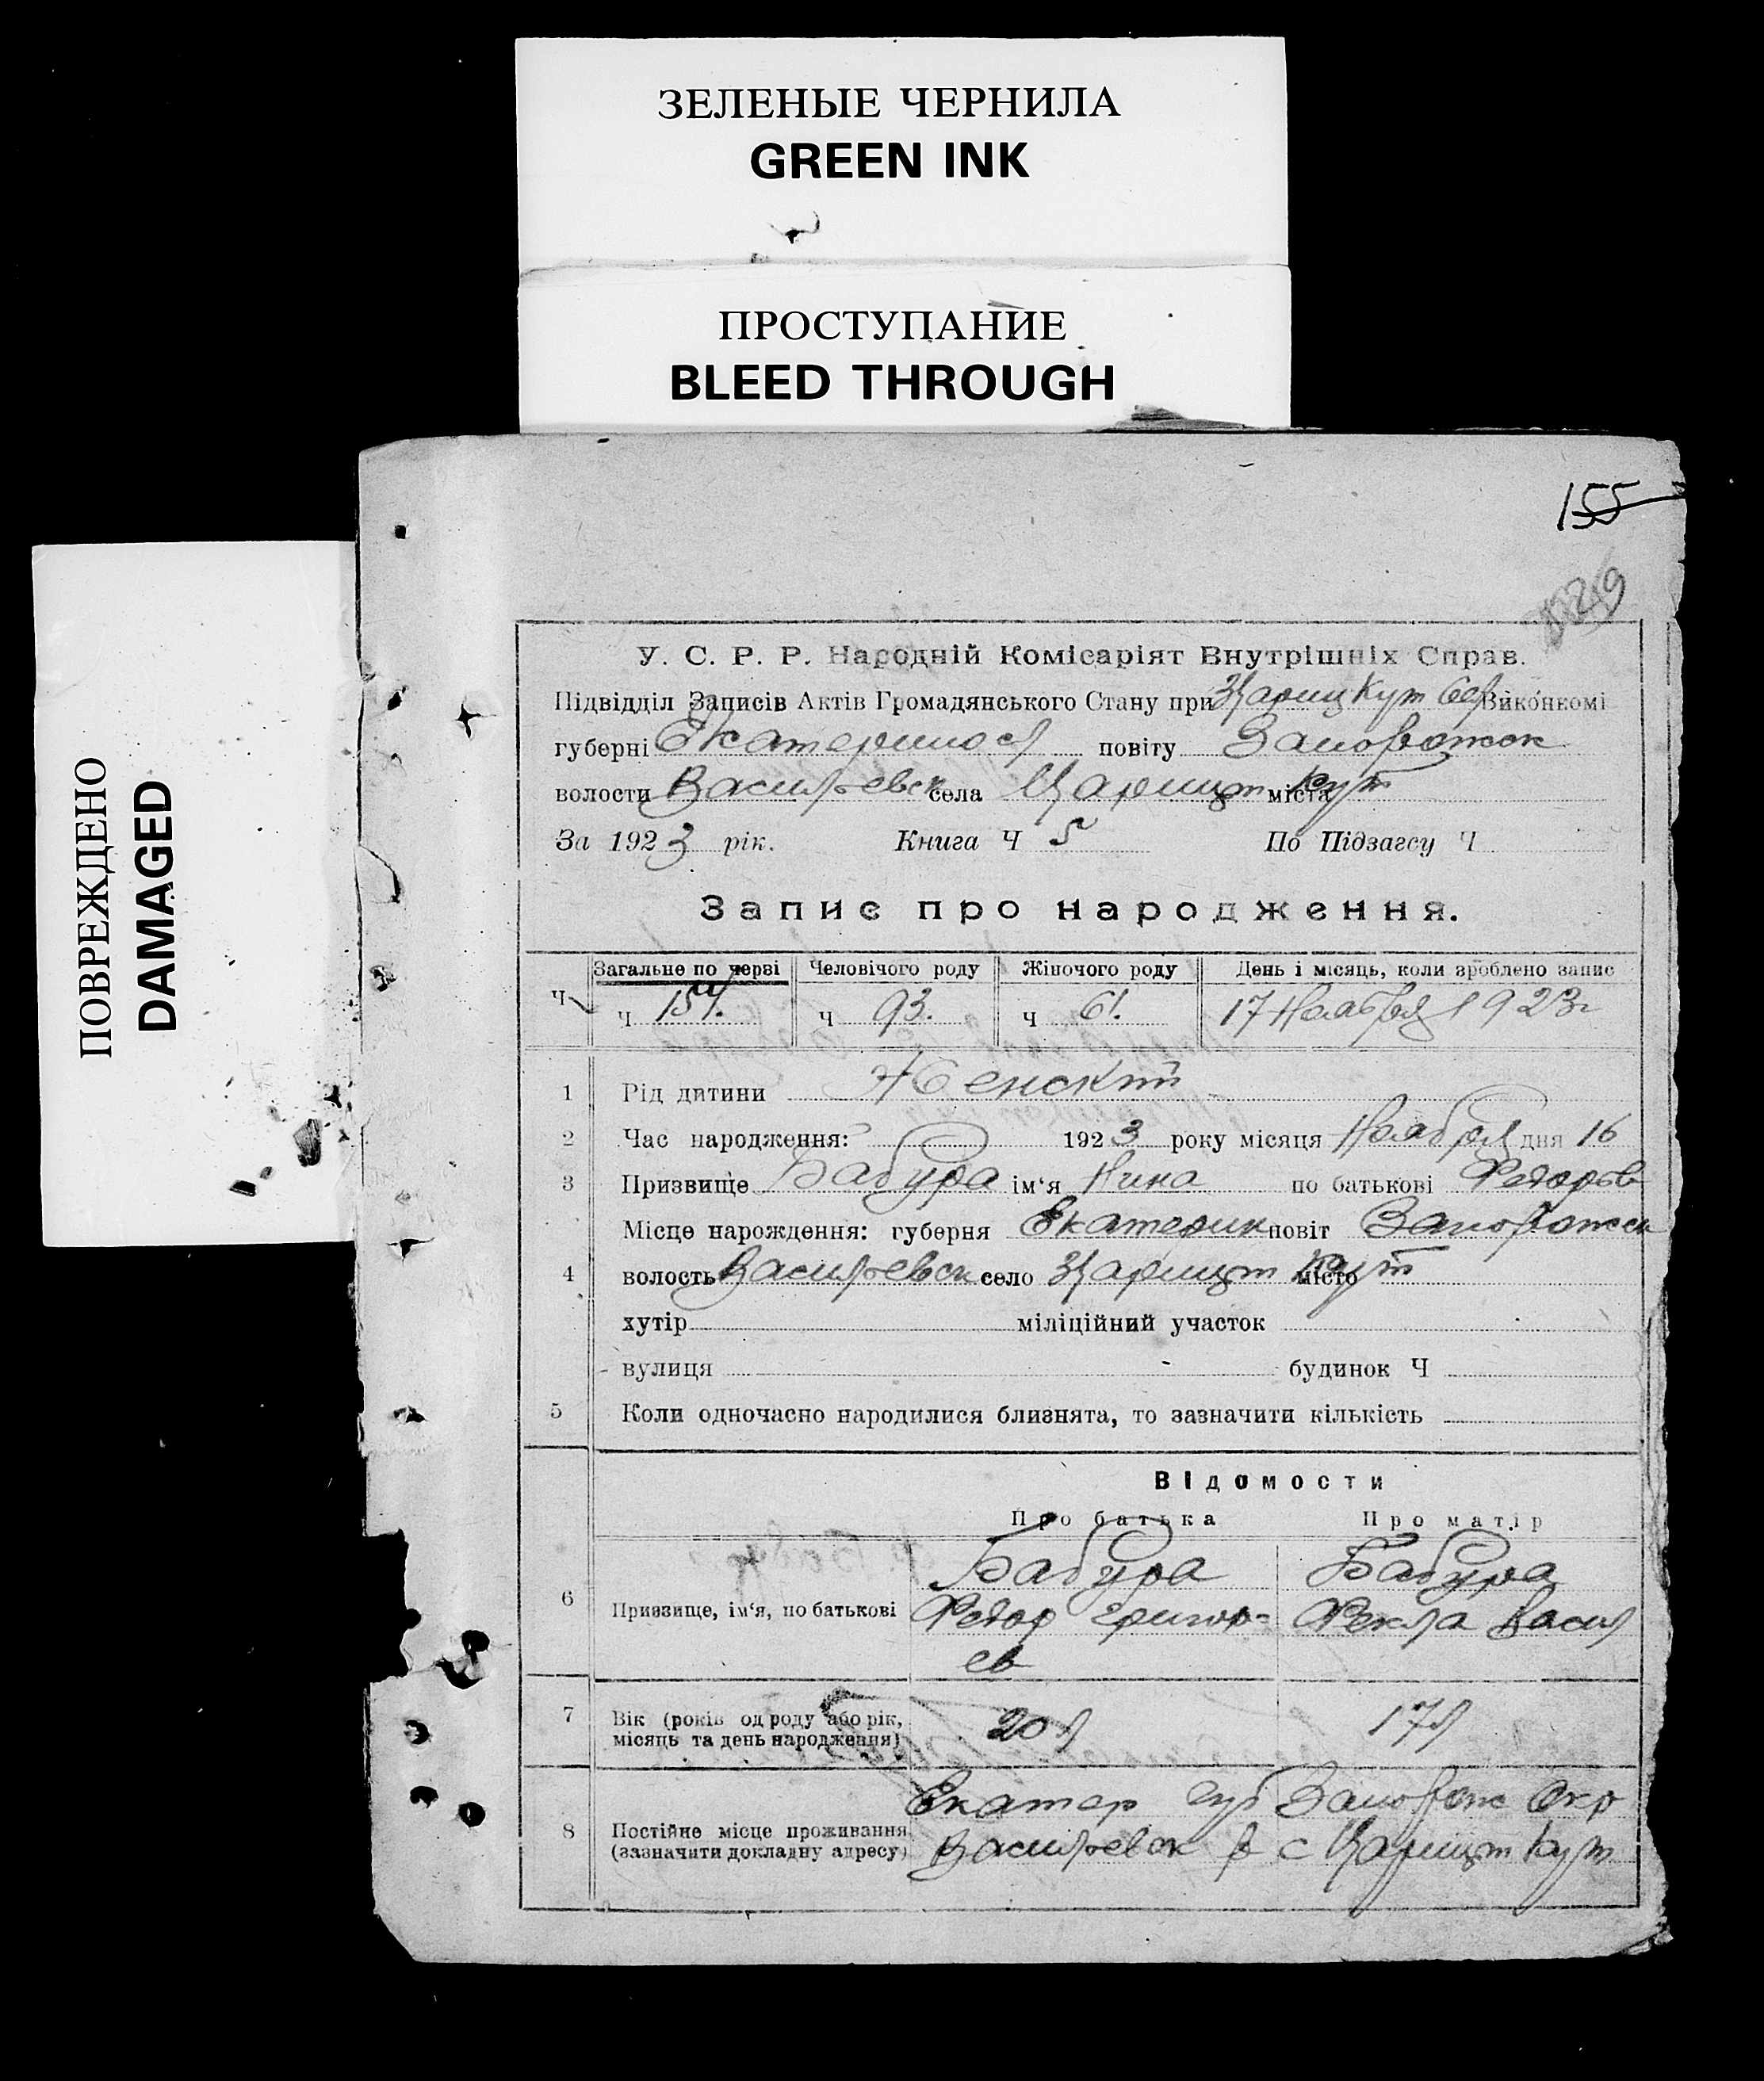 ЗЕЛЕНЫЕ ЧЕРНИЛА
GREEN INK
ПРОСТУПАНИЕ
BLEED THROUGH
ПОВРЕЖДЕНО
DAMAGED
155
У. С. Р. Р. Народній Комісаріят Внутрішніх Справ.
Підвідділ Записів Актів Громадянського Стану при Цариц Кут Виконкомі
губерні Екатериносл повіту Запорожск
волости Васильевск села Царицын міста Кут
За 1923 рік. Книга Ч 5 По Підзагсу Ч
Запис про народження.
Загальне по черзі Человічого роду Жіночого роду День і місяць, коли зроблено запис
Ч Ч 154. Ч 93. Ч 61. 17 Ноября 1923г
1 Рід дитини Женский
2 Час народження: 1923 року місяця Ноября дня 16
3 Призвище Бабура ім‘я Нина по батькові Федоров
Місце нарождення: губерня Екатерин повіт Запорожск
4 волость Васильевск село Царицын місто Кут
хутір міліційний участок
вулиця будинок Ч
5 Коли одночасно народилися близнята, то зазначити кількість
Відомости
Про батька Про матір
Бабура Бабура
6 Призвище, ім‘я, по батькові Федор Григор- Фекла Васил
ев
7 Вік (років од роду або рік, 20 л 17 л
місяць та день народження)
Екатер губ Запорож Окр
8 Постійне місце проживання
(зазначити докладну адресу) Васильевск р с Царицын Кут